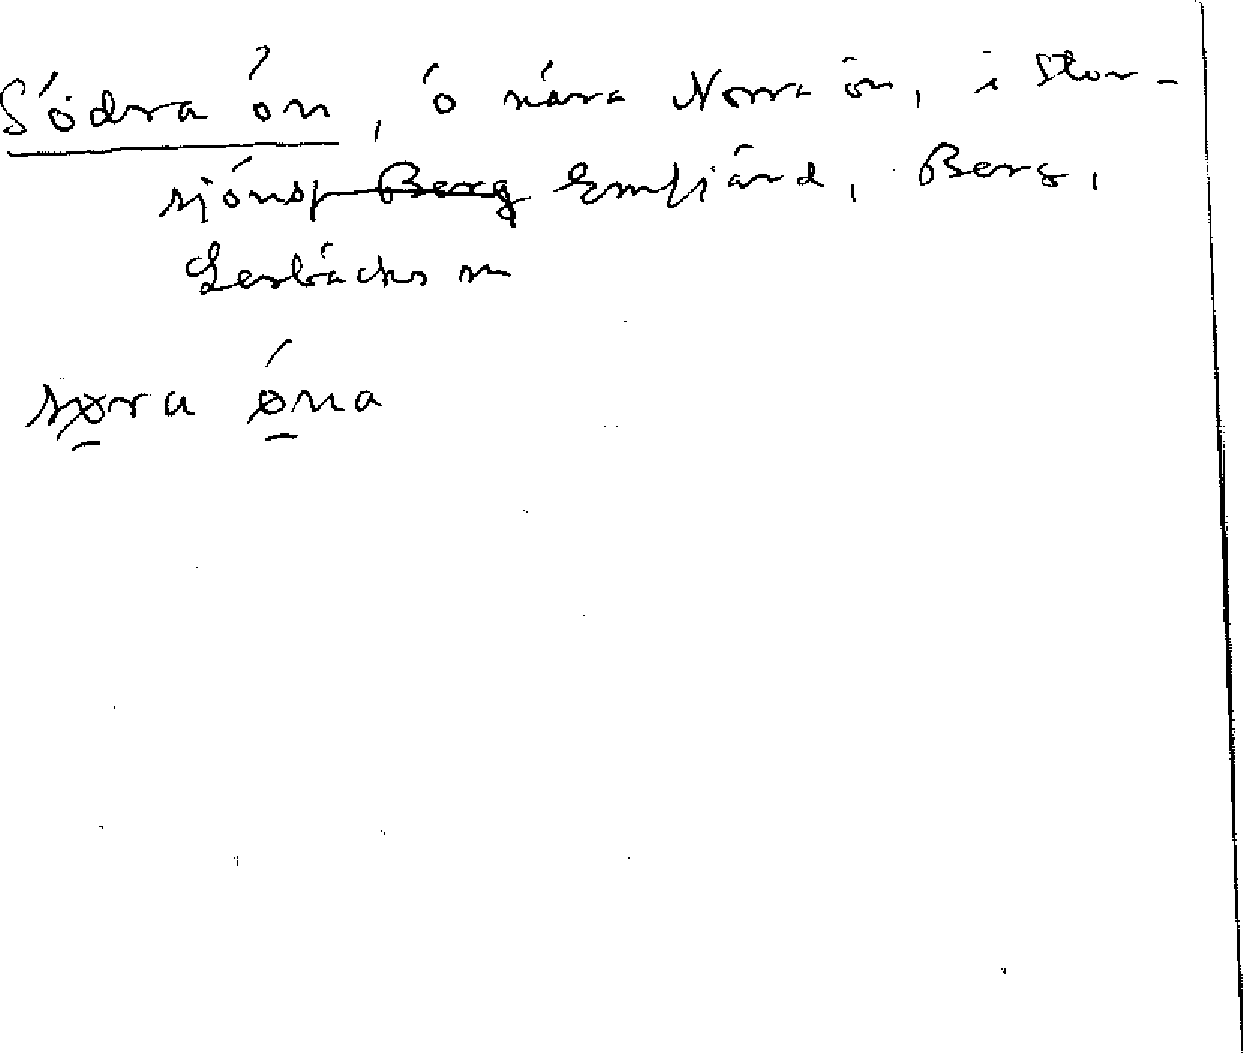 Södra ön, ö nära Norra ön, i Stor-
sjöns Berg Emfjärd, Berg,
Lerbäcks sn
søra øna